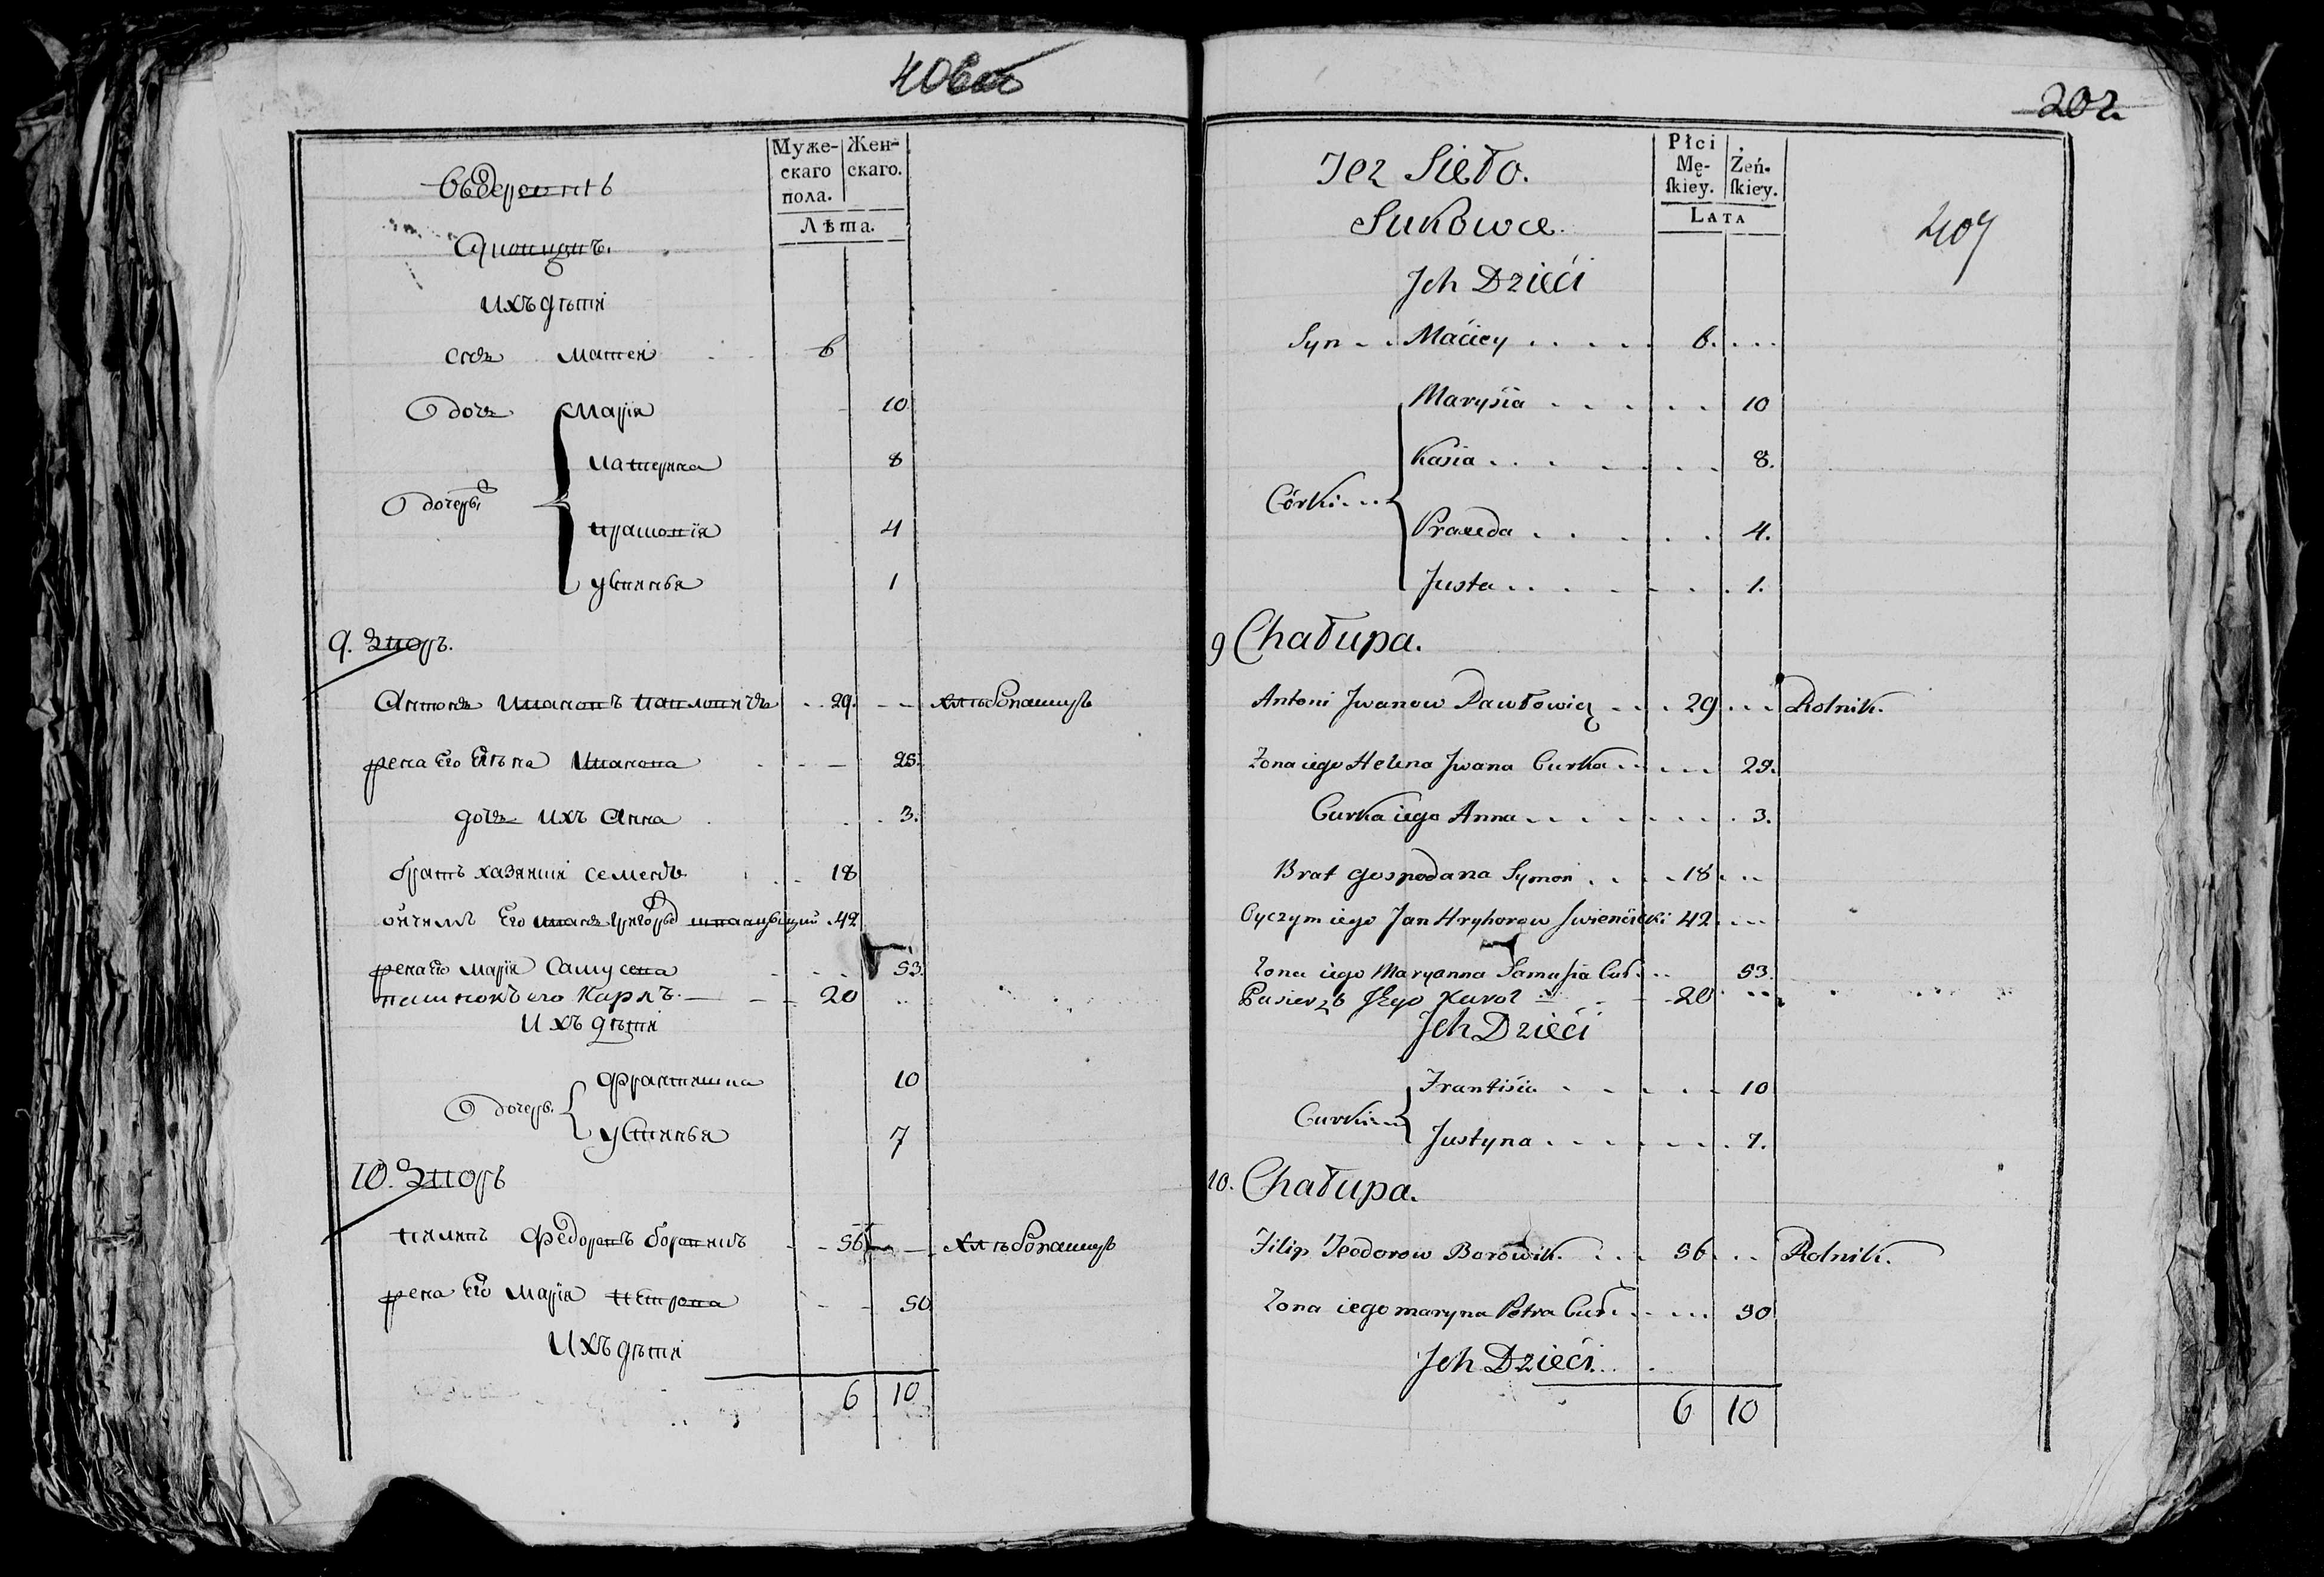 406об
Муже-
скаго
пола.
Жен-
скаго.
Лѣта.
ихъ дѣти
сынъ матей 6
дочь Марія 10
катерина 8
дочери
4
устинья 1
9. Дворъ.
Антонъ Ивановъ павловичъ 29. хлѣбопашецъ
жена Его Елѣна Иванова 25.
дочь ихъ Анна 3.
братъ хазяини семенъ 18
отчимъ Его Иванъ григорьевъ 42
жена Его Марія Самусева 53.
пасинокъ его Карлъ. 20
Ихъ дѣти
Франтишка 10
дочери.
устинья 7
10. Дворъ
Филипъ Федоровъ боровикъ 56 хлѣбопашецъ
жена Его Марія Петрова 50
Ихъ дѣти
6 10
202.
Tez Sieło.
Płci
Mę-
ſkiey.
Żeń-
ſkiey.
Lata
Sukowce.
407
Jch Dzieći
Syn Maćiey 6.
Marysia 10
Kasia 8.
Córki
Praxeda 4.
Justa 1.
9 Chałupa.
Antoni Jwanow Pawłowicz 29 Rolnik.
Żona iego Helena Jwana Curka 25.
Curka iego Anna 3.
Brat gospodarza Symon 18
Oyczym iego Jan Hryhorow 42
Żona iego Maryanna Samusia Cur. 53.
Pasierzb Jego Karol 20
Jch Dzieći
Frantisia 10
Curki
Justyna 7.
10. Chałupa.
Filip Teodorow Borowik 56 Rolnik.
Żona iego maryna Petra Cur. 50
Jch Dzieći
6 10